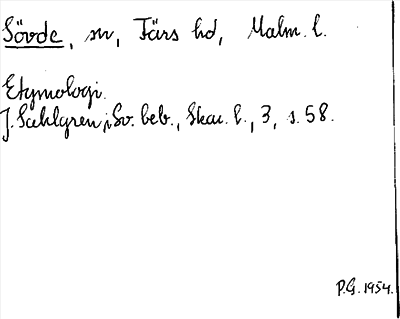 Sövde, sn, Färs hd, Malm. l.
Etymologi.
J. Sahlgren i Sv. beb., Skån. l., 3, s. 58.
P.G. 1954.